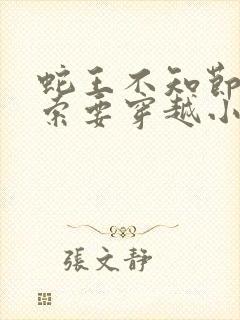 蛇王不知節
索要穿越小
張文靜